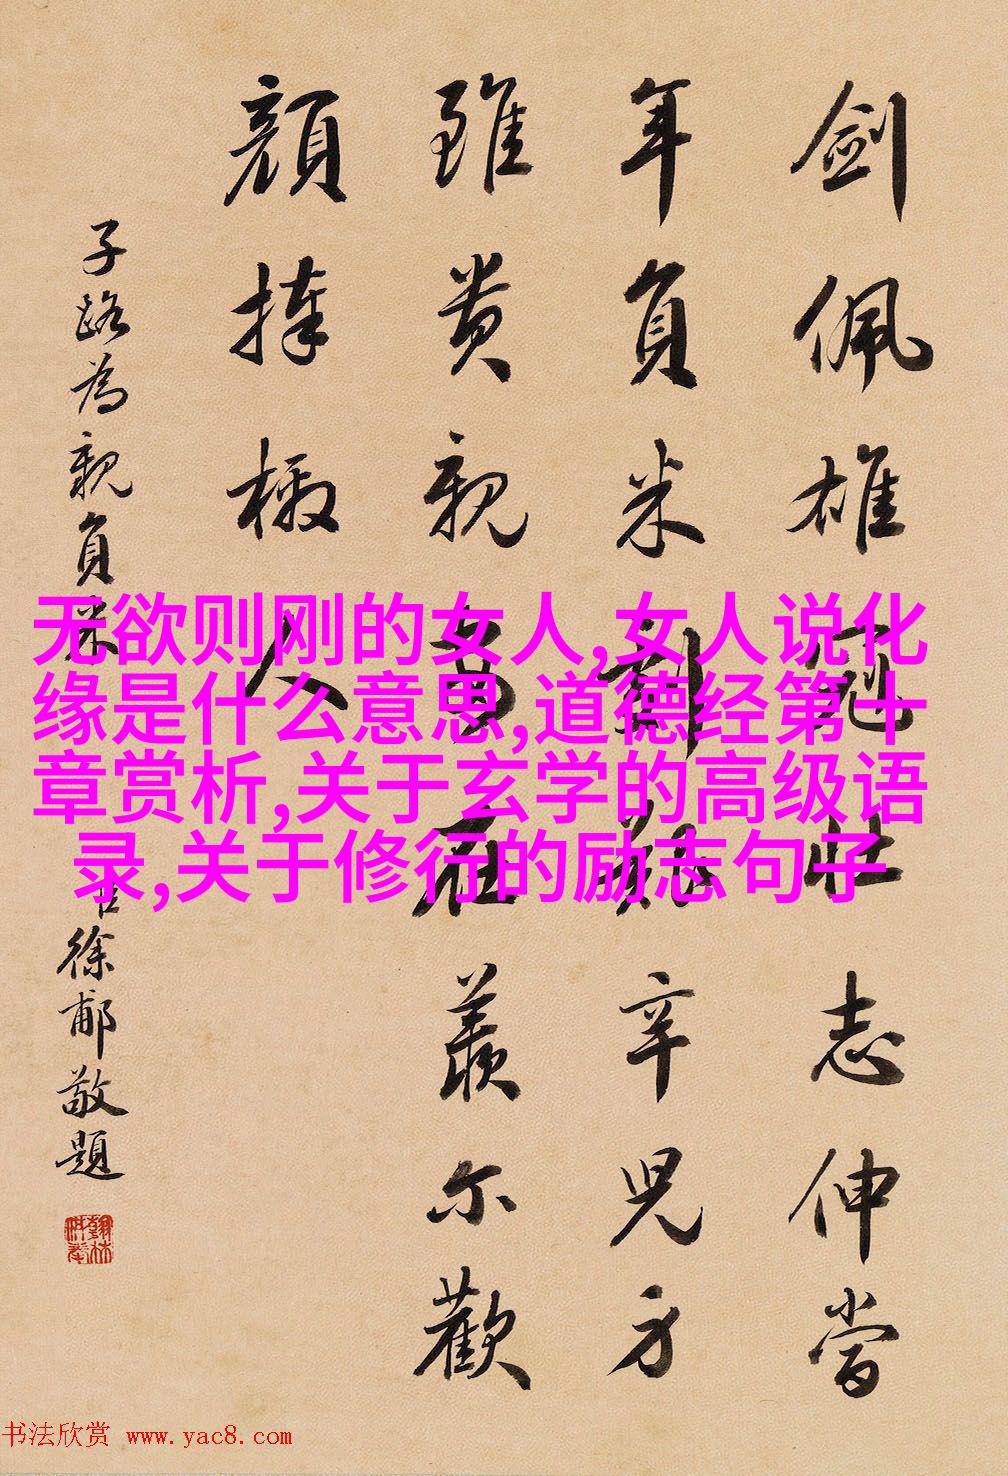 劍佩雄冠壯志伸當
年負米劇艱辛兒身
雖貴親在羨爾歡
顏捧檄人
子路為親負米
徐郙敬題
无欲则刚的女人,女人说化
缘是什么意思,道德经第十
章赏析,关于玄学的高级语
录,关于修行的励志句子
书法欣赏 www.yac8.com